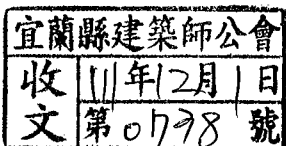 宜蘭縣建築師公會
收文
111年12月1日
第0798號